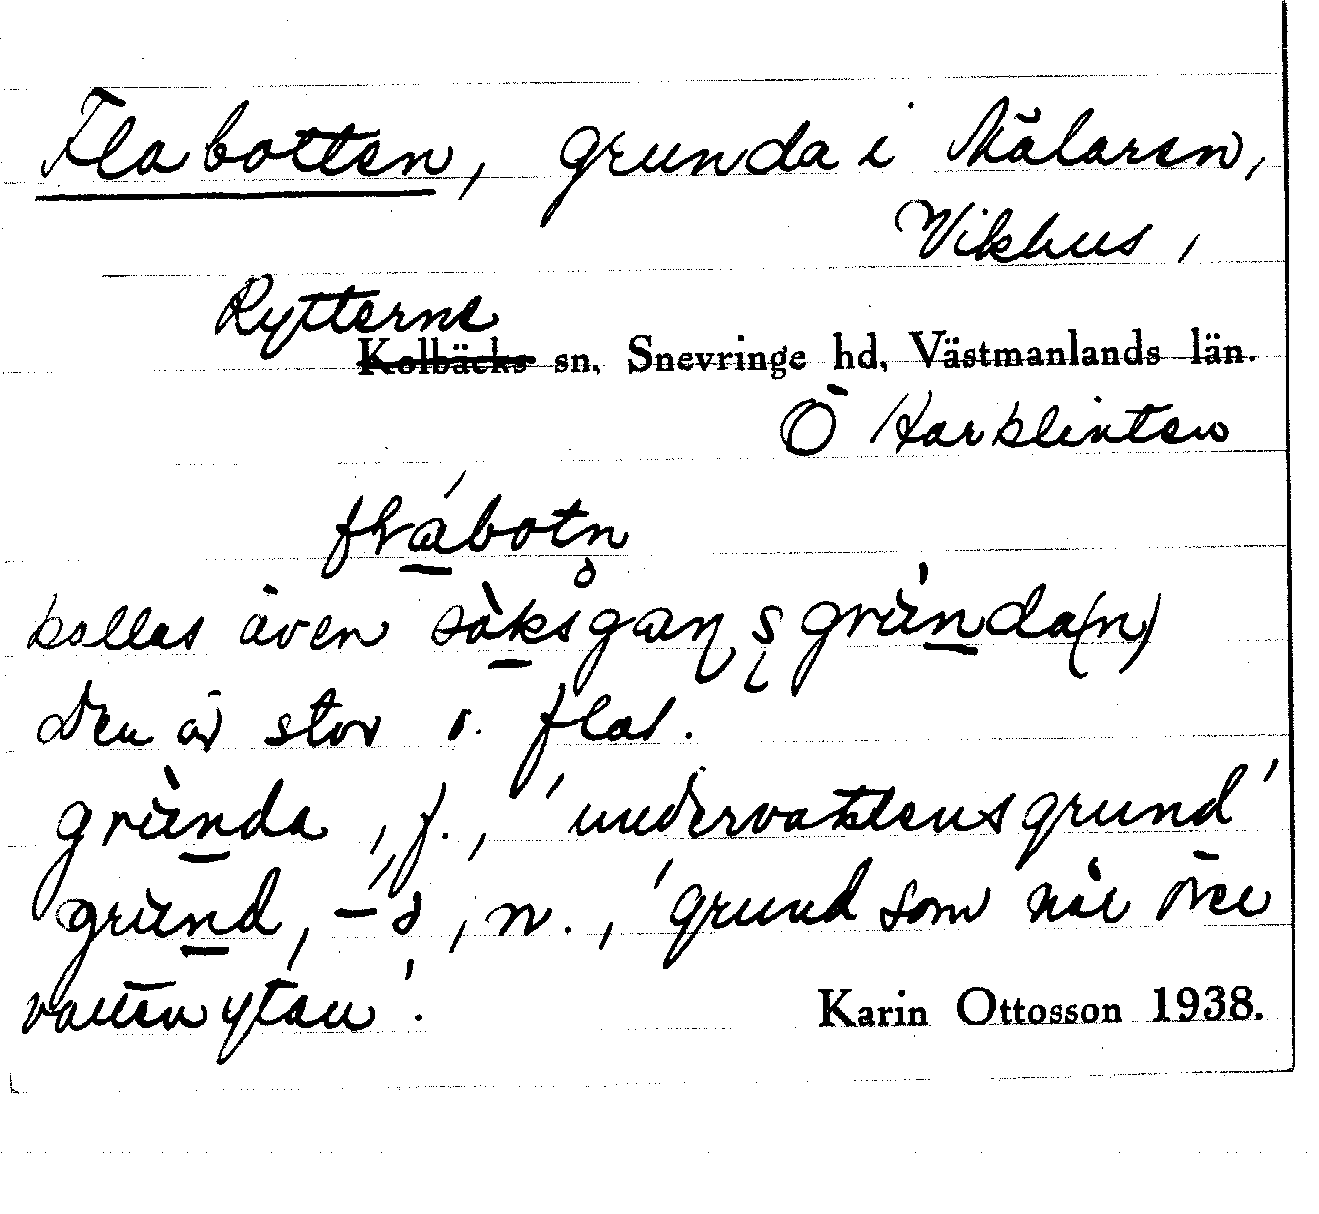 Flabotten, grunda i Mälaren,
Vikhus,
Rytterne
Kolbäcks sn, Snevringe hd, Västmanlands län.
Ö Harklinten
flábotn̥
kallas även såksgaŋs grùnda(n)
Den är stor o. flat.
grùnda, f., 'undervattensgrund'
grùnd, -ʼә, n., 'grund som når över
vattenytan'.
Karin Ottosson 1938.